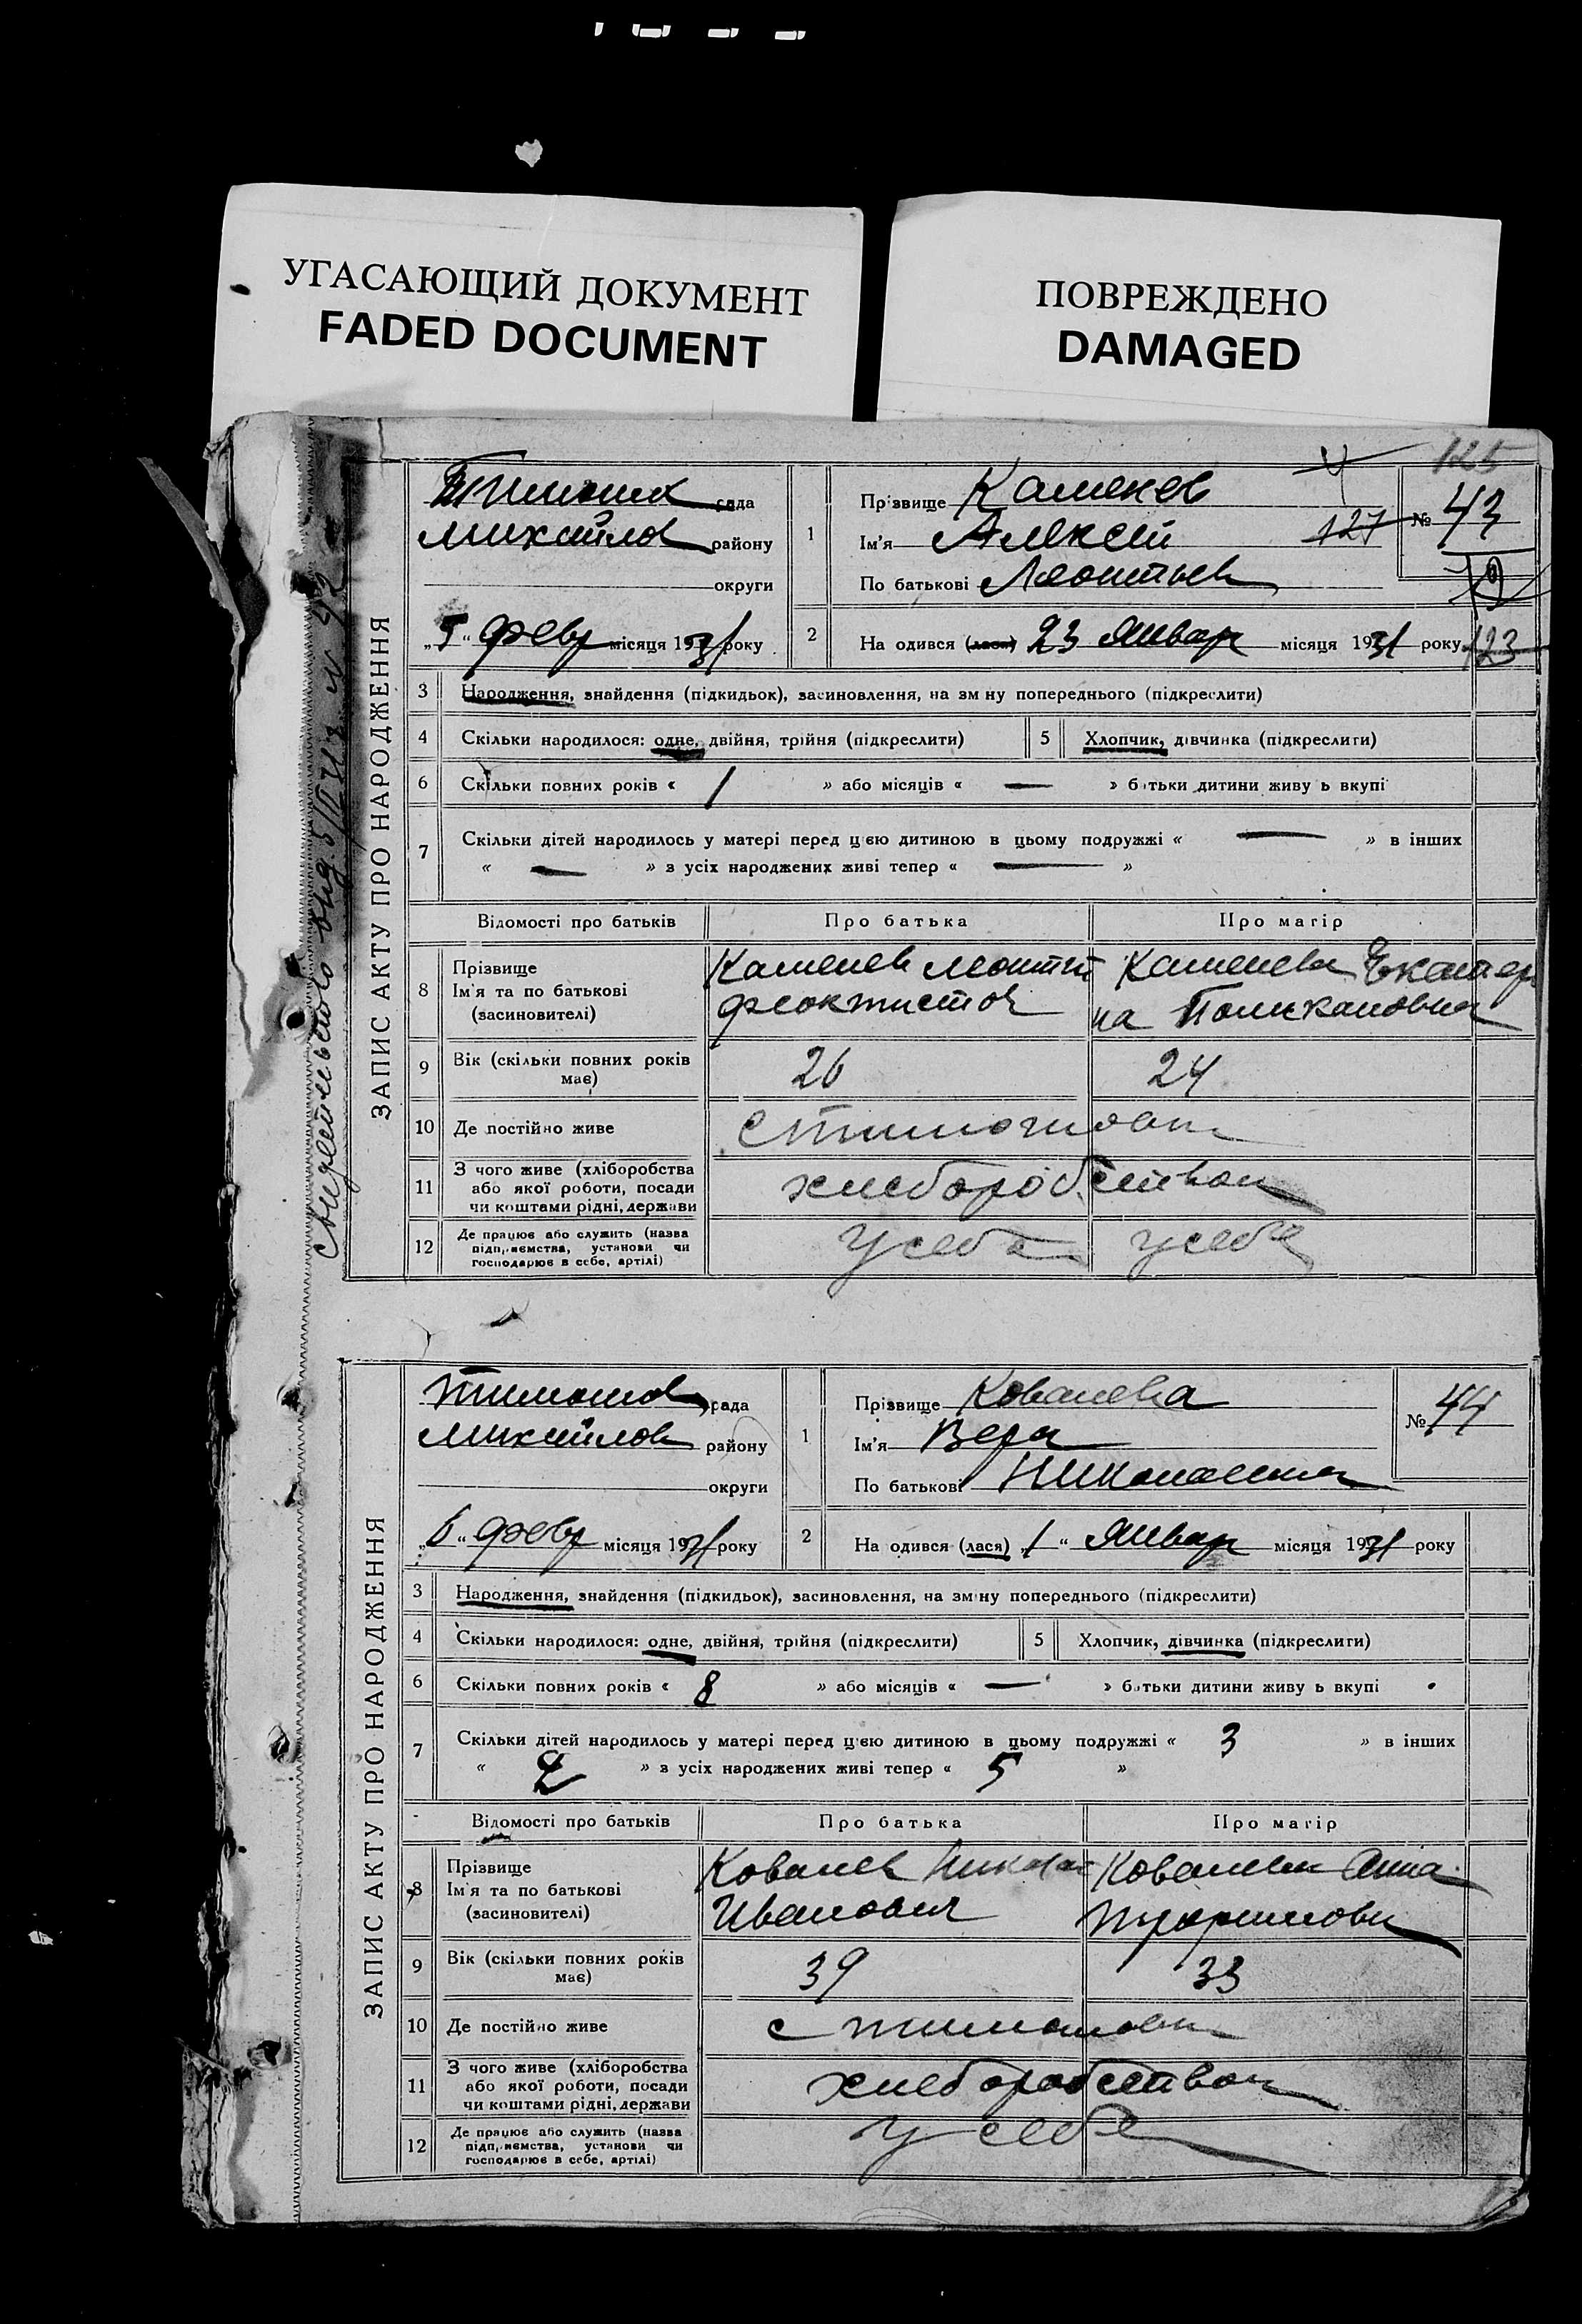 УГАСАЮЩИЙ ДОКУМЕНТ
FADED DOCUMENT
ПОВРЕЖДЕНО
DAMAGED
125
ЗАПИС АКТУ ПРО НАРОДЖЕННЯ
рада
району
округи
„5“ февр місяця 1931 року
1 Прізвище Каменев
Ім'я Алексей
По батькові Леонтьев
127
№ 43
2 На одився (лася) 23 Январ місяця 1931 року
123
3 Народження, знайдення (підкидьок), засиновлення, на зм ну попереднього (підкреслити)
4 Скільки народилося: одне, двійня, трійня (підкреслити) 5 Хлопчик, дівчинка (підкреслити)
6 Скільки повних років « 1 » або місяців « — » б тьки дитини живу ь вкупі
7 Скільки дітей народилось у матері перед цією дитиною в цьому подружжі « — » в інших
« — » з усіх народжених живі тепер « — »
Відомості про батьків Про батька Про матір
8 Прізвище
Ім'я та по батькові
(засиновителі)
Каменев Леонтий
Феоктистов
Каменева Екатери
на
9 Вік (скільки повних років
має)
26 24
10 Де постійно живе
11 З чого живе (хліборобства
або якої роботи, посади
чи коштами рідні, держави
хлеборобством
12 Де працює або служить (назва
підприємства, установи чи
господарює в себе, артілі)
у себе у себе
ЗАПИС АКТУ ПРО НАРОДЖЕННЯ
Тимошов рада
Михайлов району
округи
„6“ февр місяця 1931 року
1 Прізвище Ковалева
Ім'я Вера
По батькові Николаевна
№ 44
2 На одився (лася) „1“ Январ місяця 1931 року
3 Народження, знайдення (підкидьок), засиновлення, на зм ну попереднього (підкреслити)
4 Скільки народилося: одне, двійня, трійня (підкреслити) 5 Хлопчик, дівчинка (підкреслити)
6 Скільки повних років « 8 » або місяців « — » б тьки дитини живу ь вкупі
7 Скільки дітей народилось у матері перед цією дитиною в цьому подружжі « 3 » в інших
« 2 » з усіх народжених живі тепер « 5 »
Відомості про батьків Про батька Про матір
8 Прізвище
Ім'я та по батькові
(засиновителі)
Ковалев Николай
Иванович
Ковалева Анна
9 Вік (скільки повних років
має)
39 33
10 Де постійно живе
с Тимошовк
11 З чого живе (хліборобства
або якої роботи, посади
чи коштами рідні, держави
хлеборобством
12 Де працює або служить (назва
підприємства, установи чи
господарює в себе, артілі)
у себе